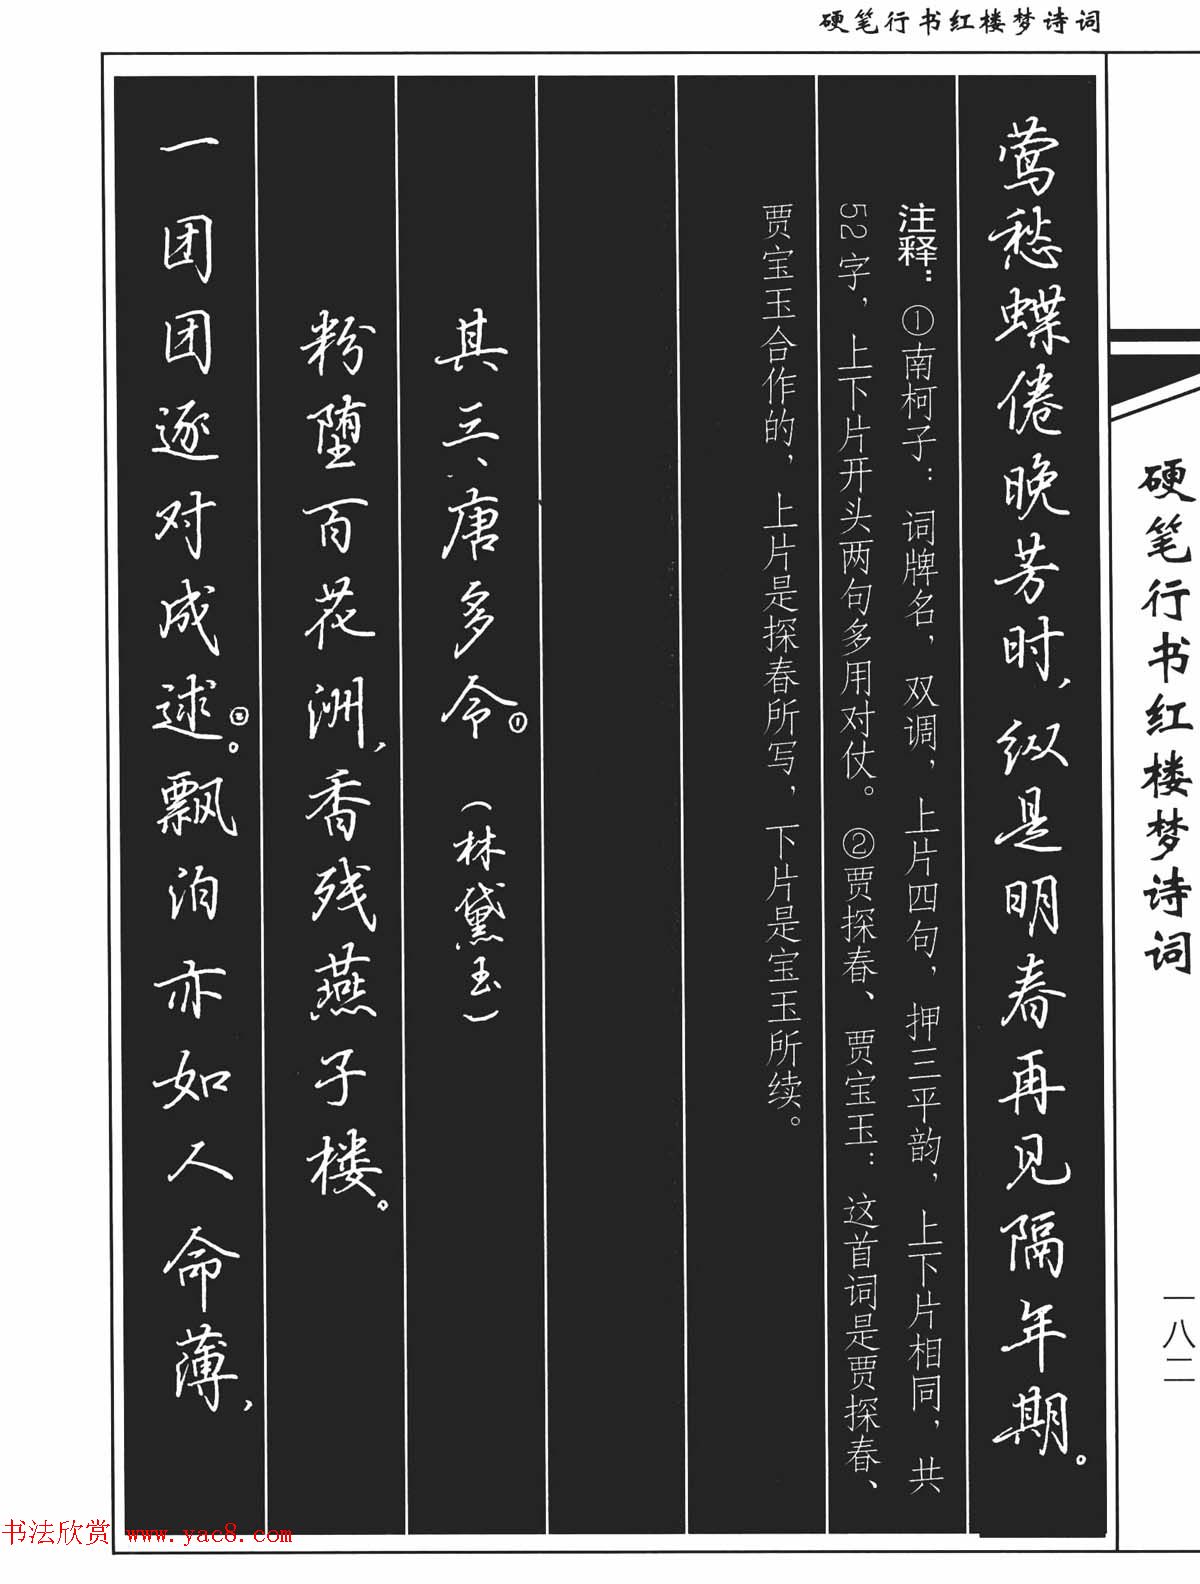 硬笔行书红楼梦诗词
硬笔行书红楼梦诗词
一八二
莺愁蝶倦晚芳时，纵是明春再见隔年期。
注释：①南柯子：词牌名，双调，上片四句，押三平韵，上下片相同，共
52字，上下片开头两句多用对仗。②贾探春、贾宝玉：这首词是贾探春、
贾宝玉合作的，上片是探春所写，下片是宝玉所续。
其三、唐多令①（林黛玉）
粉堕百花洲，香残燕子楼。
一团团逐对成逑②。飘泊亦如人命薄，
书法欣赏 www.yac8.com